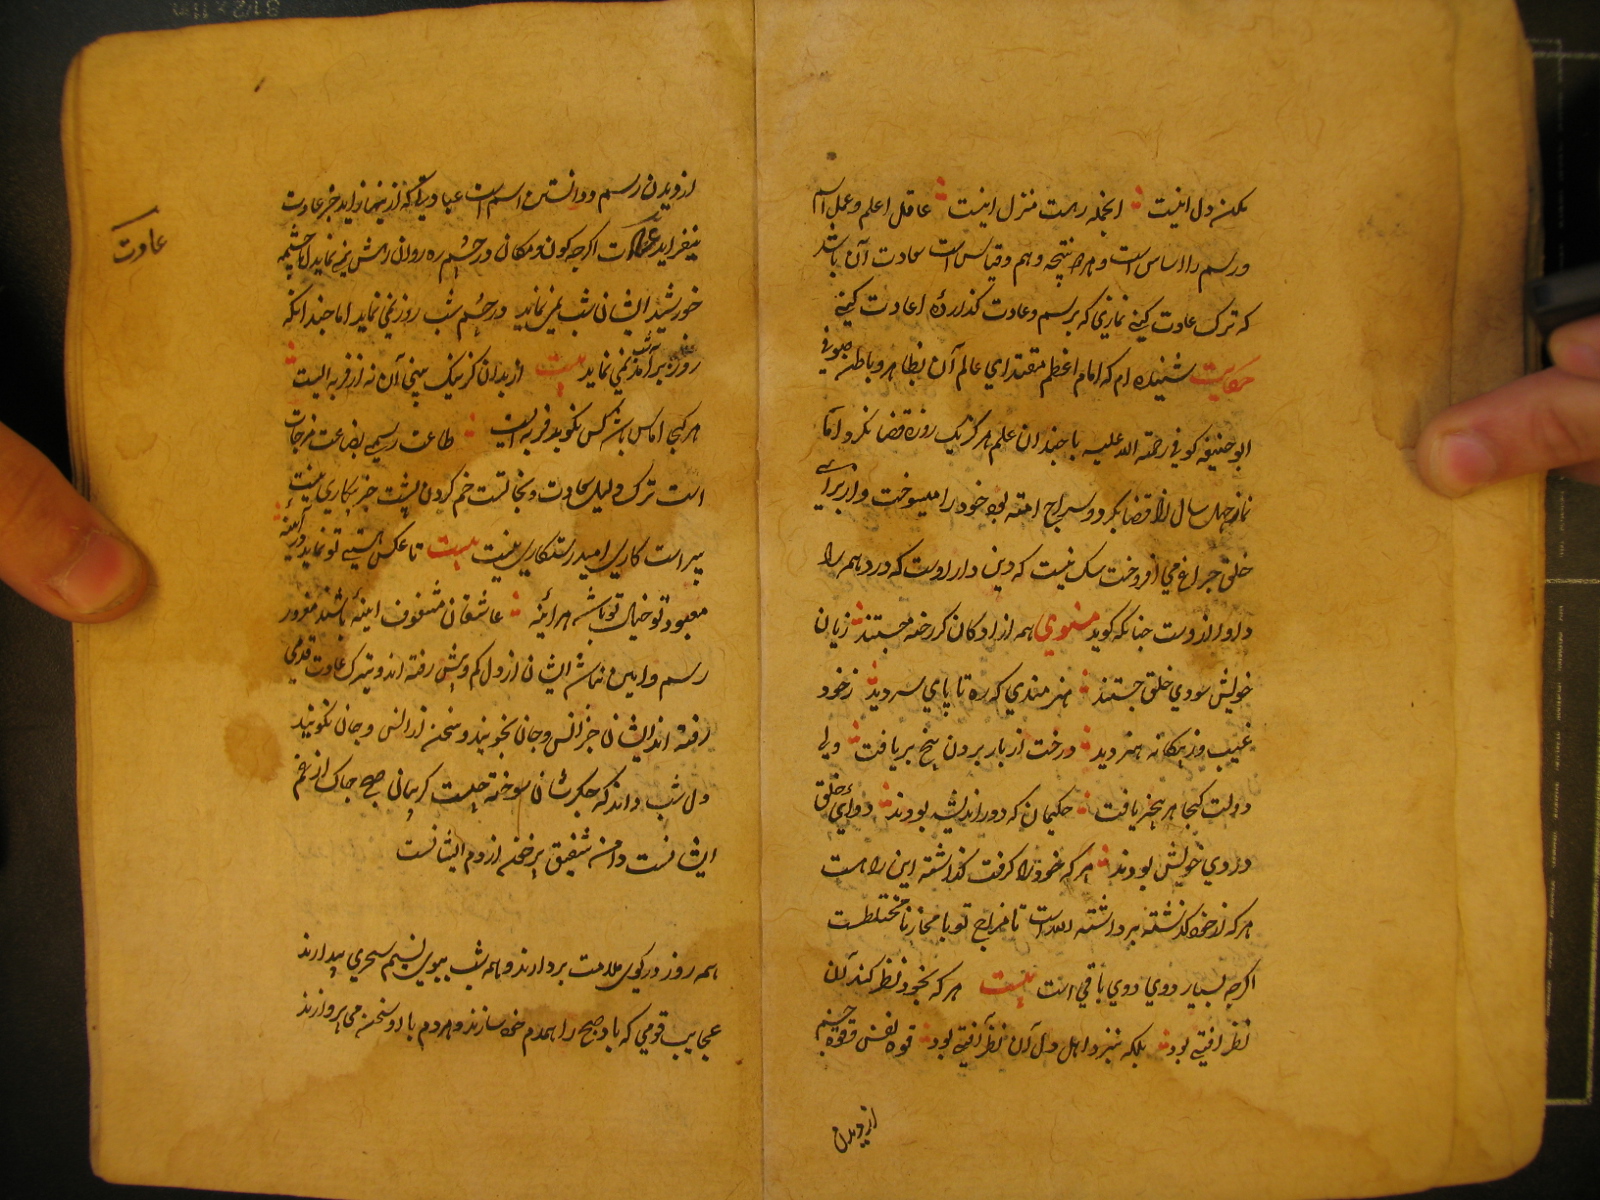 مکن دل اینست ؞ انجمله رهست منزل اینست ؞ عاقل اعلم و عمل اسم
و رسم را اساس است و هرچه نتیجه وهم و قیاس است سعادت آن باشد
که ترک عادت کنی نمازی که برسم و عادت گذارده اعادت کنی
حکایت شنیده ام که امام اعظم مقتدای عالم آن بظاهر و باطن صوفی
ابوحنیفه کوفی رحمة الله علیه با چندان علم هرگز یک روزه قضا نکرد و اما
نماز چهل سال را قضا بکرد و سراج امته بود خود را میسوخت و از برای
خلق چراغ می افروخت شک نیست که دین دار اوست که درد همه را
دارو ازوست چنانکه گوید مثنوی همه ازادکان کز رخنه جستند ؞ زیان
خویش سودی خلق جستند ؞ هنرمندی که ره تا پای سر دید ؞ ز خود
عیب و ز بیکانه هنر دید ؞ درخت از بار برون بیخ بر یافت ؞ ولی
دولت کجا هر بیخبر یافت ؞ حکیمان که دوراندیشه بودند ؞ دوای خلق
دردی خویش بودند ؞ هر که خود را گرفت گذاشته این راهست
هر که از خود گذشته برداشته الله است تا مزاج تو با مجاز نامختلطست
اگرچه بسیار دوی دوی باقی است بیت هر که بخود نظر کند آن
نظر آفتی بود ؞ بلکه نبزد اهل دل آن نظر آفتی بود ؞ قوه نفس و قوه جسم
از دیدن
از دیدن رسم و دانستن اسم است عبادتی که از بینما زاید جز عادت
نیفزاید عادت اگرچه کون و مکان در چشم ره روان رهش نمی نماید اما چشمه
خورشید ایشان شب نمی نماید و در چشم شب روز نمی نماید اما چندانکه
روز برآمد شب نمی نماید بیت از بدان گر نیک بینی آن نه از فربه الیست
هر کجا اماس باشد کس نگوید فربه است ؞ طاعت رسمی بضاعت مزجات
است ترک دلیل سعادت و نجاتست خم کردن پشت جز بیکاری نیست
پیر است کاری امید رستکاری نیست بیت تا عکس هستی تو نماید در آینه
معبود تو خیال تو باشد هر آئینه ؞ عاشقان مشغوف آینه باشند مغرور
رسم و آیین نباشند ایشان از دل کم و بیش رفته اند و بترک عادت قدمی
رفته اند ایشان جز انس و جان نجویند و سخن از انس و جان نگویند
دل شب داند که جگرشان سوخته چیست گریبانی صبح چاک از غم
ایشانست و دامن شفق پر خون از دم ایشانست
همه روز در کوی ملامت بردارند و همه شب ببوی نسیم سحری بیدارند
عجایب قومی که باد صبح را همدم خود سازند و هر دم با او سخن می پردازند
عادت